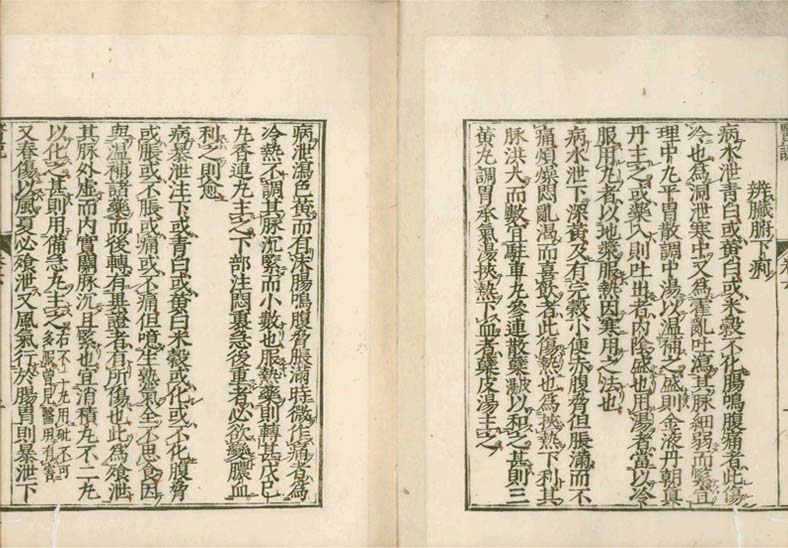 辨臟腑下痢
病水泄青白或黄白或米穀不化腸鳴腹痛者此傷
冷也為洞泄寒中又為霍亂吐瀉其脉細弱而緊宜
理中丸平胃散調中湯以温補之盛則金液丹朝真
丹主之或藥入則吐出者内陰盛也用湯者當以冷
服用丸者以地藥服熱因寒用之法也
病水泄下深黄及有完穀小便赤腹脅但脹滿而不
痛煩燥悶亂渴而喜飲者此傷熱也為挾熱下利其
脉洪大而數宜駐車丸參連散蘗皮以和之甚則三
黄丸調胃承氣湯挾熱下血者蘗皮湯主之
病泄瀉色黄而有沫腸鳴腹脅脹滿時微作痛者為
冷熱不調其脉沉緊而小數也服熱藥則轉甚戊己
丸香連丸主之下部注悶裏急後重者必欲變膿血
利之則愈
病暴泄注下或青白或黄白米穀或化或不化腹脅
或脹或不脹或痛或不痛但噫生熟氣全不思食因
與温補諸藥而後轉有異證者有所傷也此為飧泄
其脉外虚而内實關脉沉且緊也宜消積丸不二丸
以化之甚則用備急丸主之右不二丸用砒不可多服曾見醫用有害
又春傷以風夏必飧泄又風氣行於腸胃則暴泄下